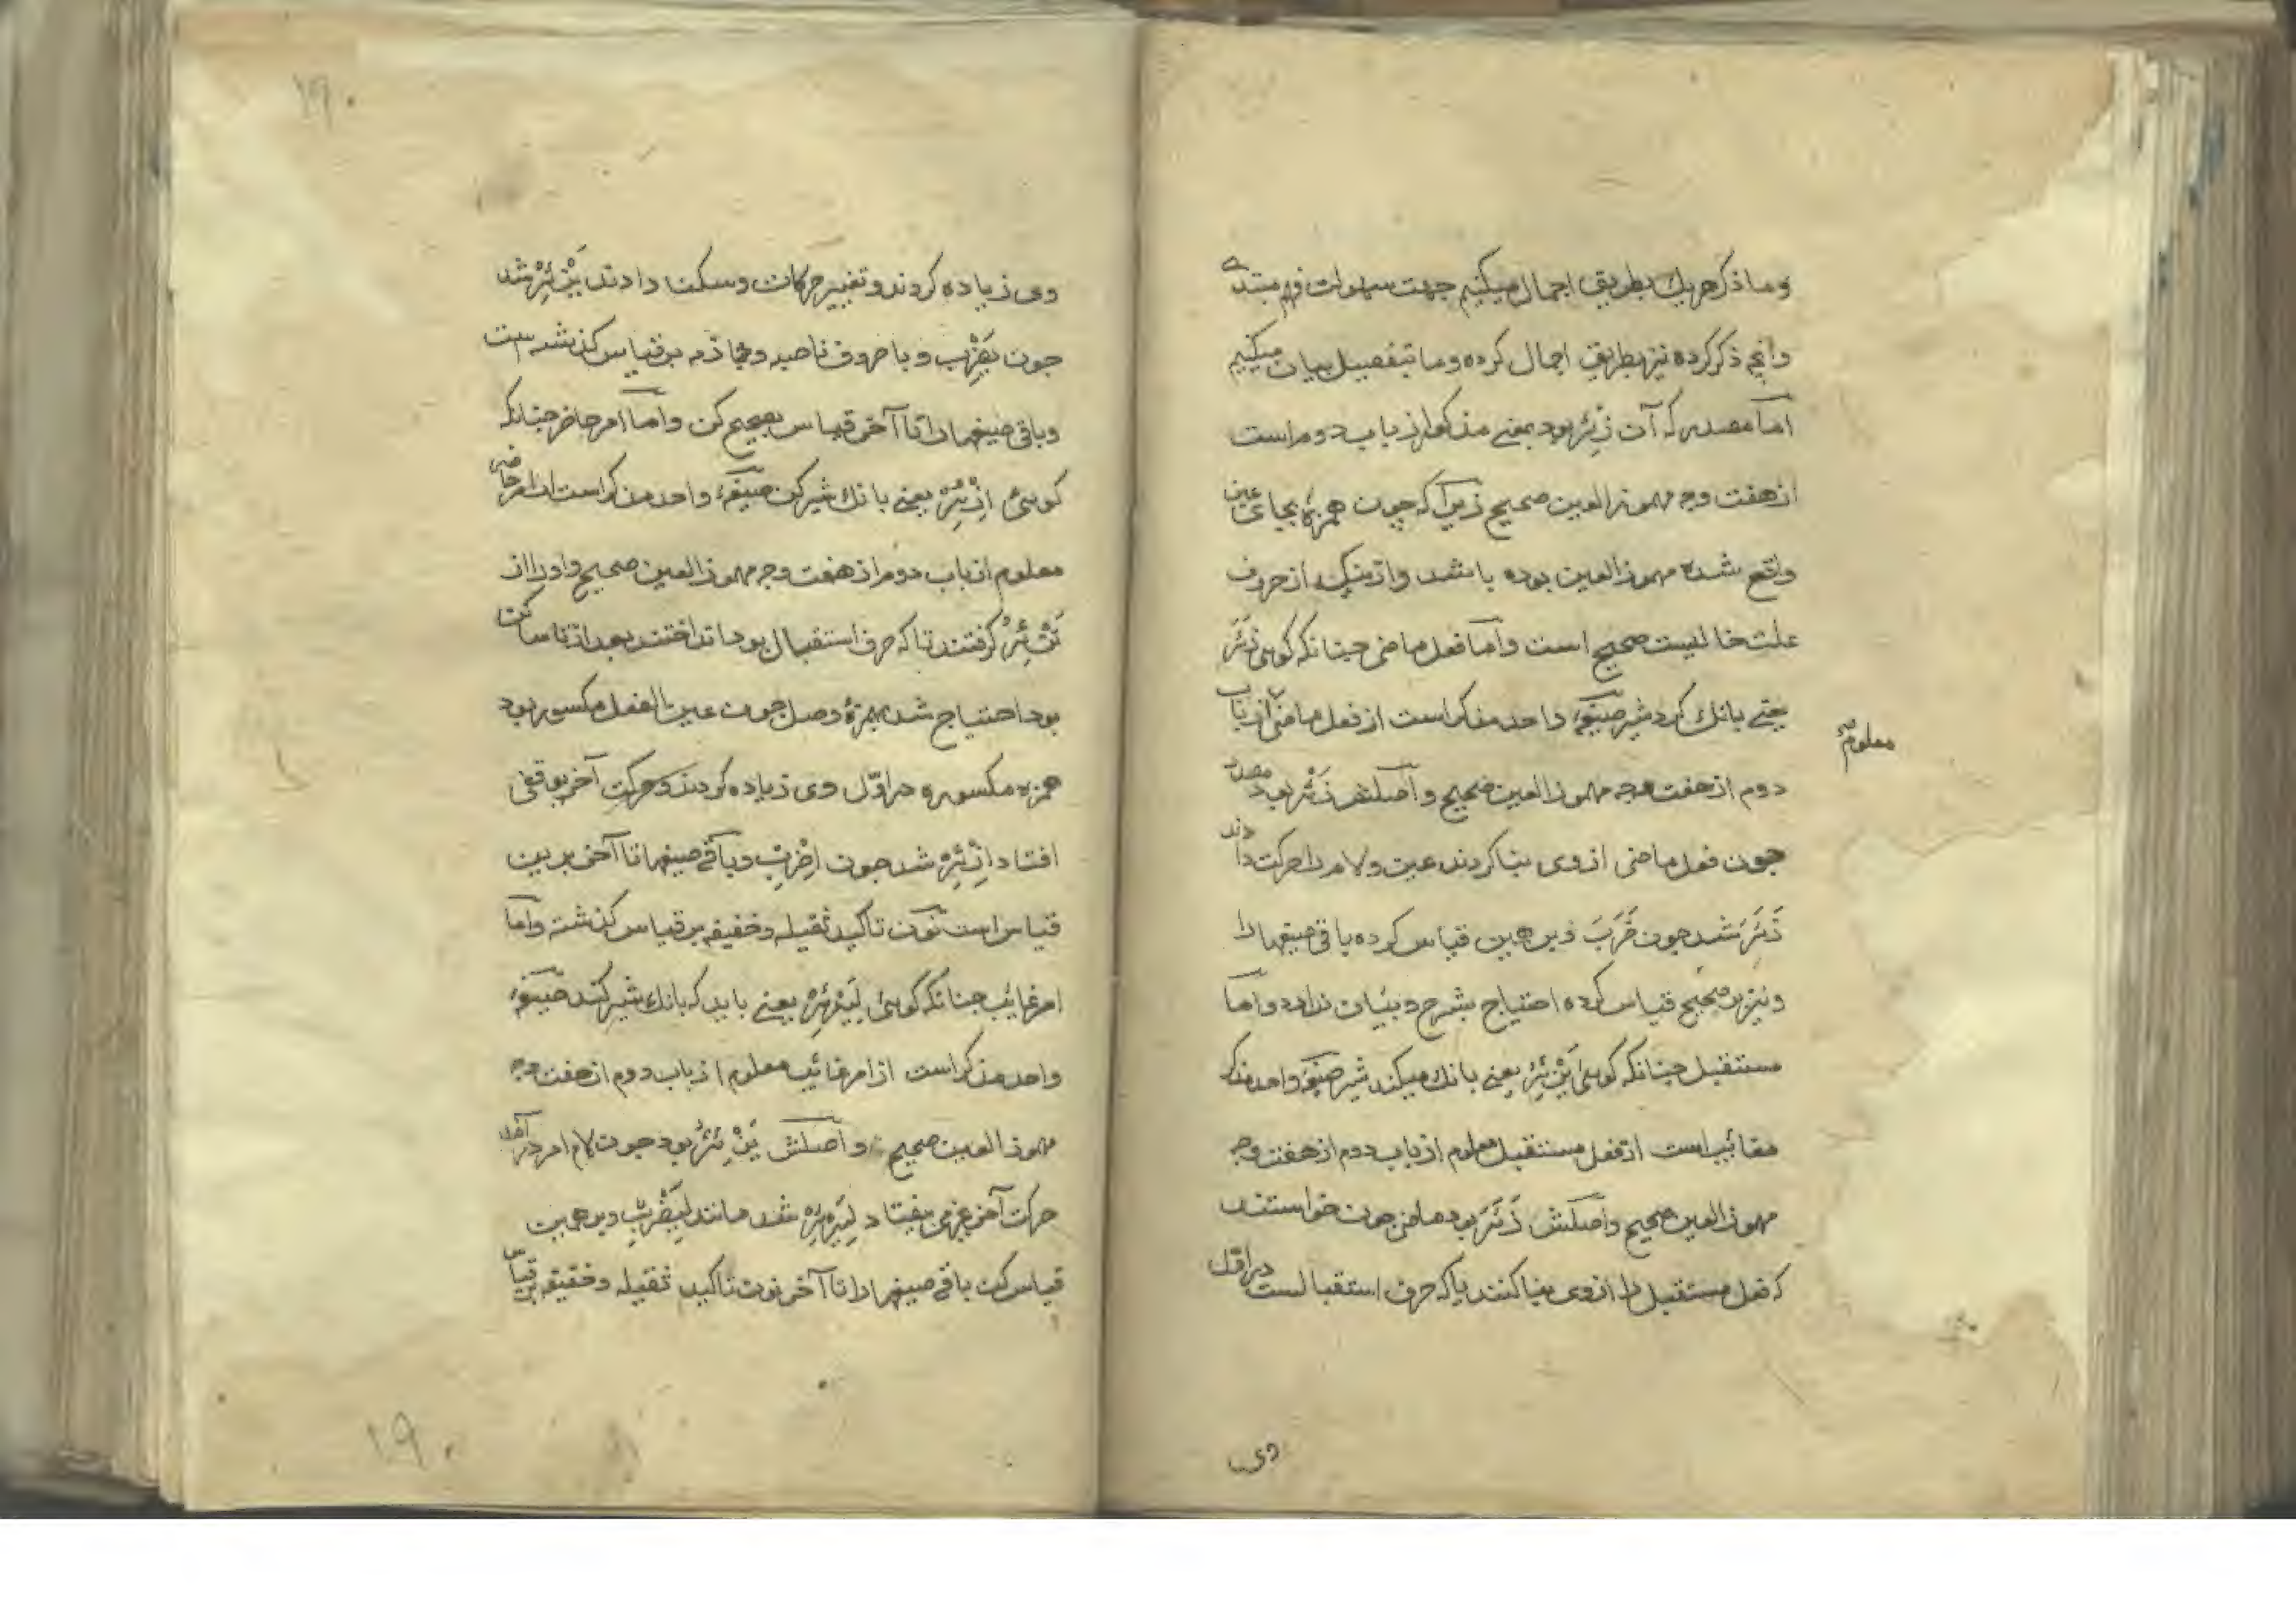 وما ذکر هریک بطریق اجمال میکنیم جهت سهولت فهم مبتدی
وانچ ذکر کرده نیز بطریق اجمال کرده وما بتفصیل بیان میکنیم
امّا مصدر که آن زَئْر بود بمعنی مذکور از باب دوم است
از هفت وجه مهموز العین صحیح زیرا که چون همزه بجای عین
واقع شده مهموز العین بوده باشد واز حروف
علت خالیست صحیح است وامّا فعل ماضی چنانکه کوئی زَئَرَ
یعنی بانک کرد شیر صیغهٔ واحد مذکر است از فعل ماضی از باب
معلوم صح
دوم از هفت وجه مهموز العین صحیح واصلش زَئْر بود مصدر
چون فعل ماضی از وی بنا کردند عین ولام را حرکت دادند
زَئَرَ شد چون ضَرَبَ وبر همین قیاس کرده باقی صیغها را
ونیز بر صحیح قیاس کرده احتیاج بشرح وبیان ندارد وامّا
مستقبل چنانکه کوئی یَزْئِرُ یعنی بانک میکند شیر صیغهٔ واحد مذکر
مغائب است از فعل مستقبل معلوم از باب دوم از هفت وجه
مهموز العین صحیح واصلش زَئَرَ بود ماضی چون خواستند
که فعل مستقبل را از وی بنا کنند یا که حرف استقبالست در اوّل
وی
۱۹۰
وی زیاده کردند وتغییر حرکات وسکنا دادند یَزْئِرُ شد
چون یَضْرِبُ وبا حروف ناصبه وجازمه بر قیاس کذشته است
وباقی صیغها را تا آخر قیاس بصحیح کن وامّا امر حاضر چنانکه
کوئی اِزْئِرْ یعنی بانک شیر کن صیغهٔ واحد مذکر است از امر حاضر
معلوم از باب دوم از هفت وجه مهموز العین صحیح واورا از
تَزْئِرُ کرفتند تا که حرف استقبال بود انداختند بعد از تا ساکن
بود احتیاج شد بهمزهٔ وصل چون عین الفعل مکسور بود
همزه مکسوره در اوّل وی زیاده کردند وحرکت آخر بوقفی
افتاد اِزْئِرْ شد چون اِضْرِبْ وباقی صیغها تا آخر برین
قیاس است نون تاکید ثقیله وخفیفه بر قیاس کذشته وامّا
امر غایب چنانکه کوئی لِیَزْئِرْ یعنی باید که بانک شیر کند صیغهٔ
واحد مذکر است از امر غائب معلوم از باب دوم از هفت وجه
مهموز العین صحیح واصلش یَزْئِرُ بود چون لام امر در آمد
حرکت آخر بیفتاد لِیَزْئِرْ شد مانند لِیَضْرِبْ وبر همین
قیاس کن باقی صیغها را تا آخر نون تاکید ثقیله وخفیفه بر قیاس
۱۹۰